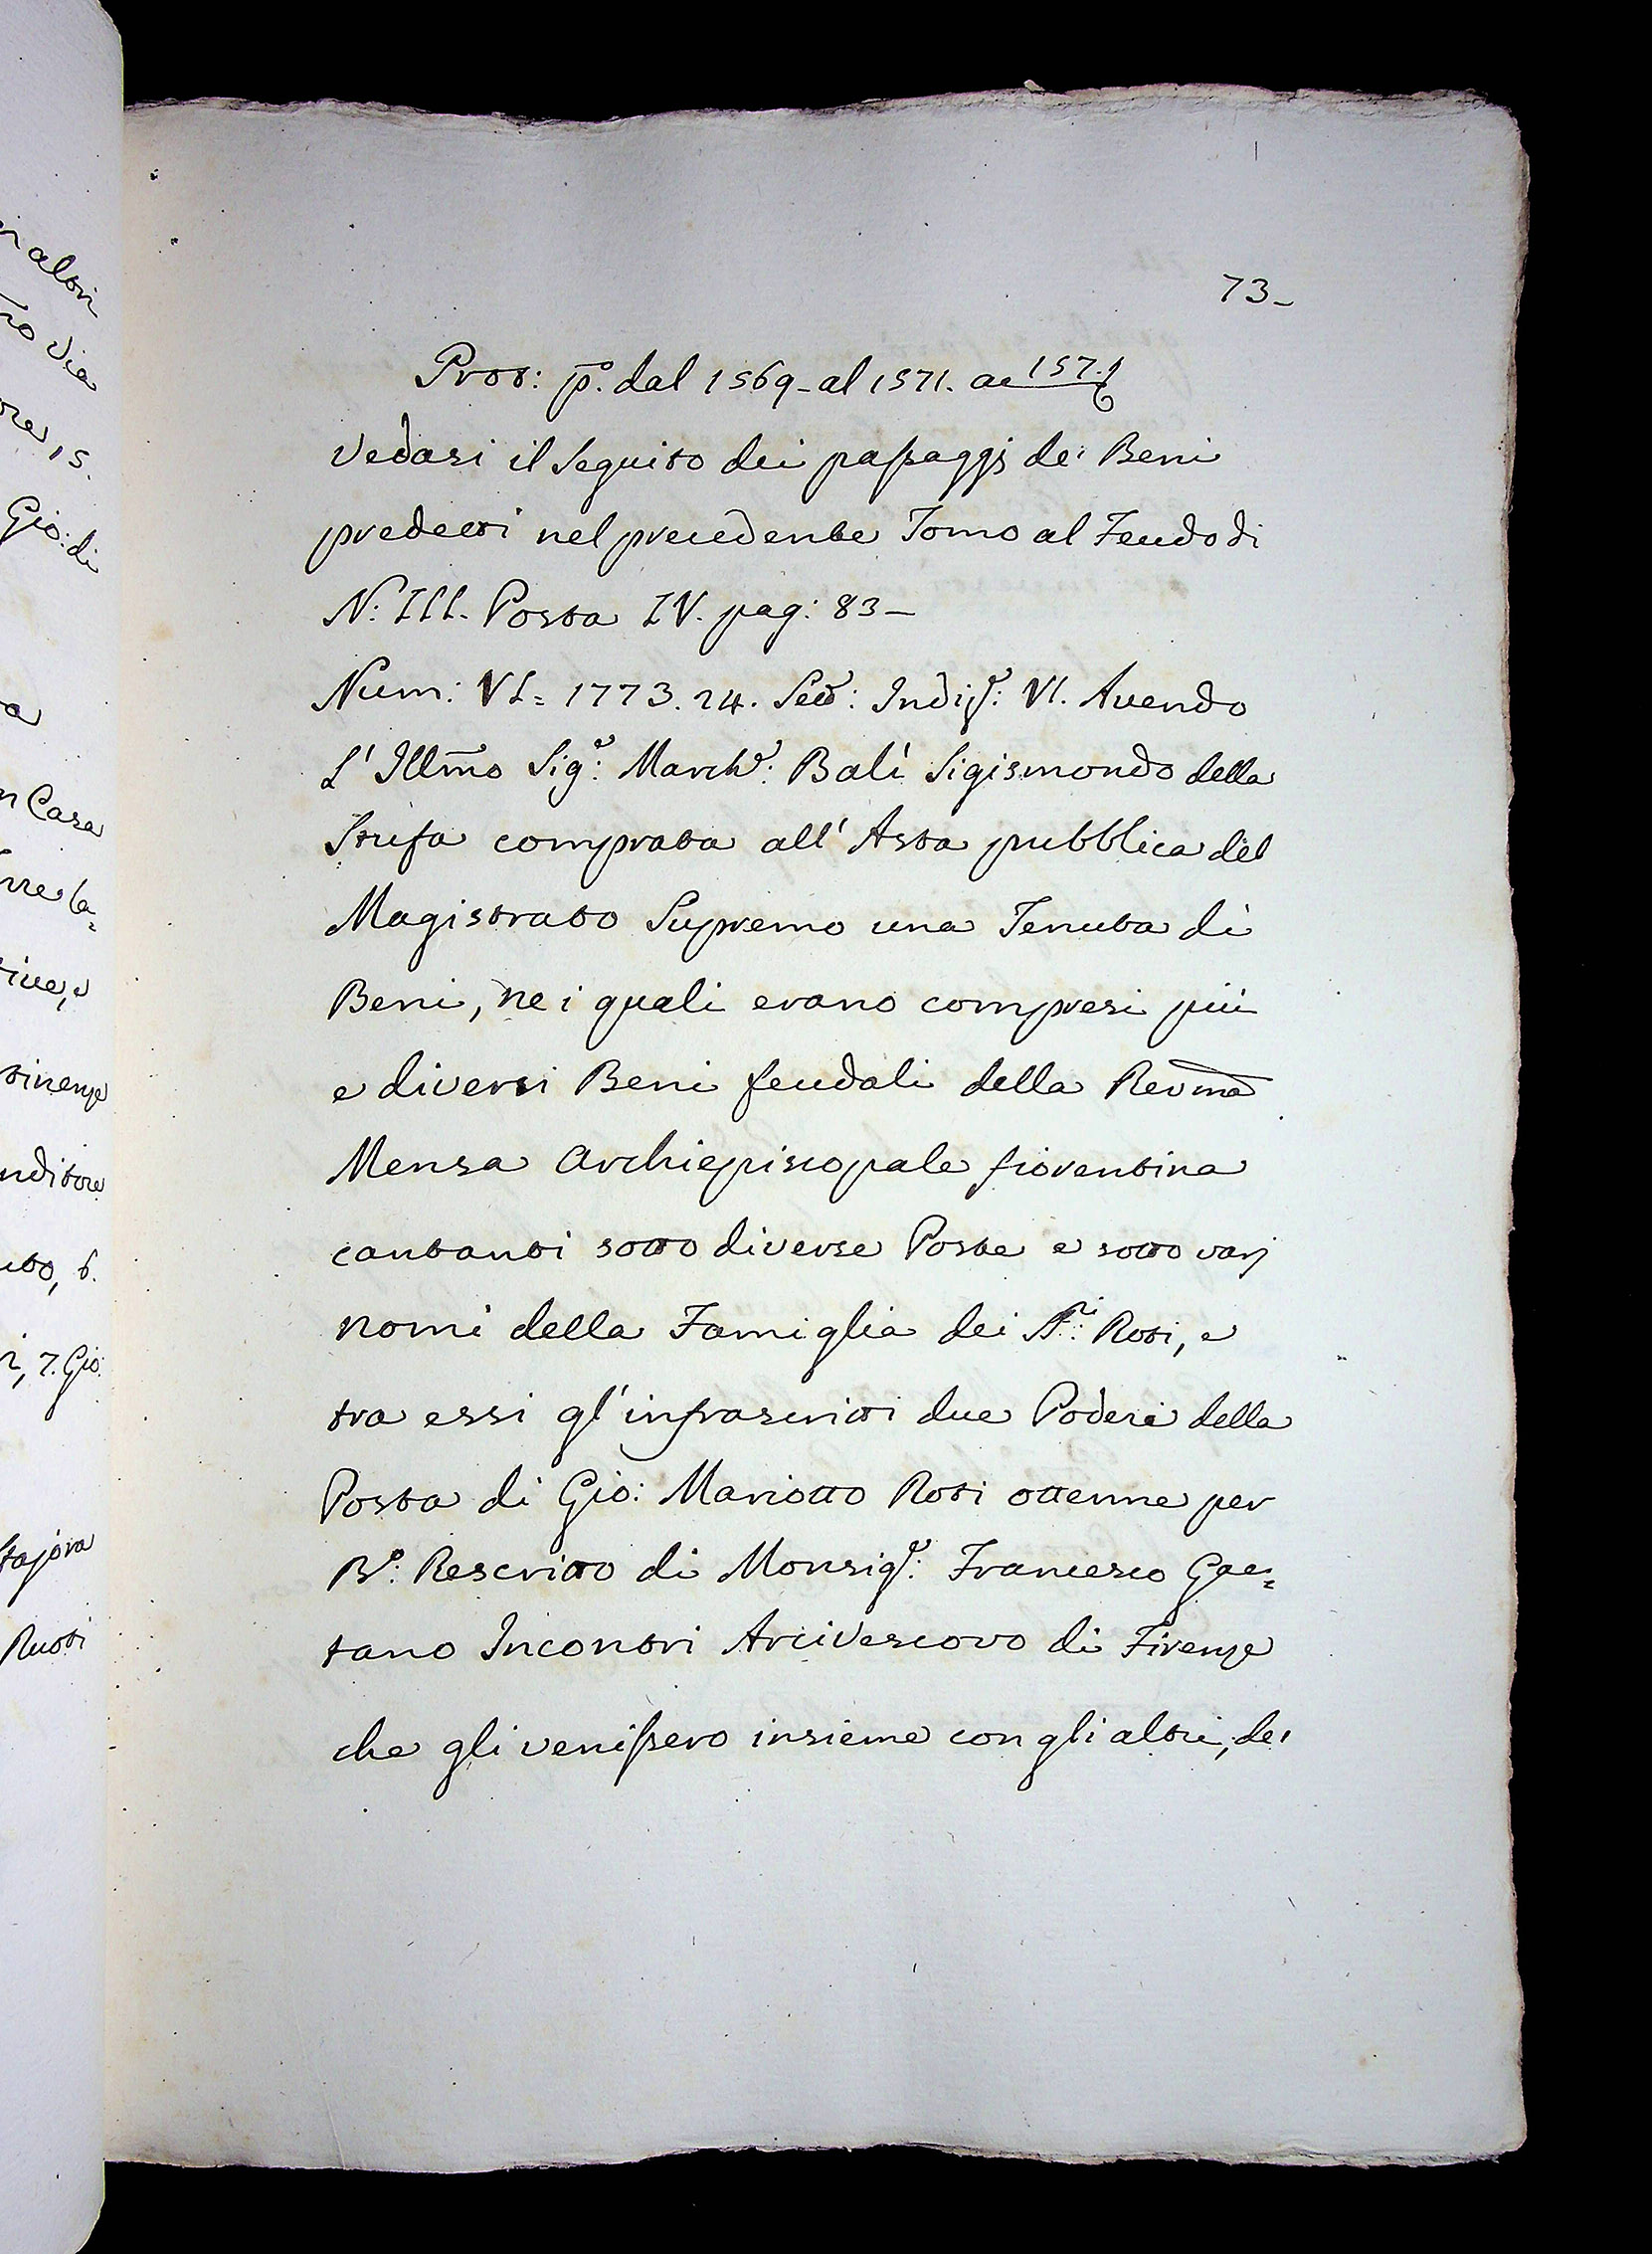 73_
Prot: p.º dal 1569_ al 1571. ac 157.
Vedasi il Seguito dei passaggj de' Beni
predetti nel precedente Tomo al Feudo di
N: III. Posta IV. pag: 83_
Num: VI= 1773. 24. Indiz.e: VI. Avendo
L' Illmo Sig.e: March.e: Balì Sigismondo della
Stufa comprata all' Asta pubblica del
Magistrato Supremo una Tenuta di
Beni, ne i quali erano compresi più
e diversi Beni feudali della Revma
Mensa Archiepiscopale fiorentina
cantanti sotto diverse Poste e sotto varj
nomi della Famiglia dei SS.ri: Roti, e
tra essi gl' infrascritti due Poderi della
Posta di Gio: Mariotto Roti ottenne per
B.o: Rescritto di Monsig.e: Francesco Gae=
tano Incontri Arcivescovo di Firenze
che gli venissero insieme con gli altri, de'
altri
via
15.
Gio: di
Casa
nditore
6.
7. Gio:
stajora
Ruoti